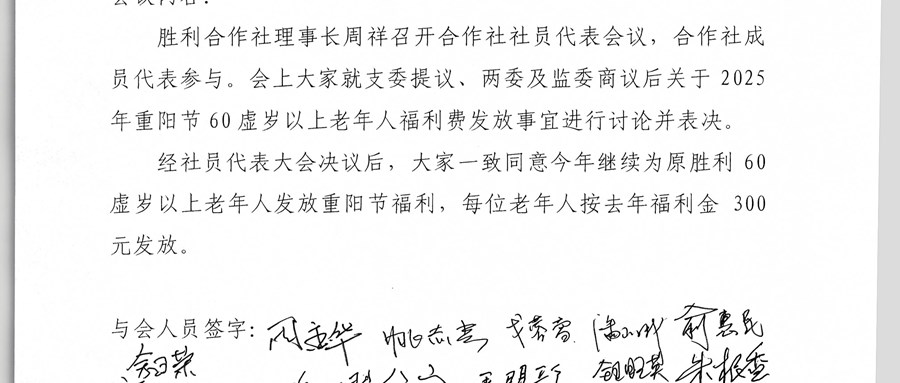 会议内容：
胜利合作社理事长周祥召开合作社社员代表会议，合作社成
员代表参与。会上大家就支委提议、两委及监委商议后关于 2025
年重阳节 60 虚岁以上老年人福利费发放事宜进行讨论并表决。
经社员代表大会决议后，大家一致同意今年继续为原胜利 60
虚岁以上老年人发放重阳节福利，每位老年人按去年福利金 300
元发放。
与会人员签字： 俞惠民